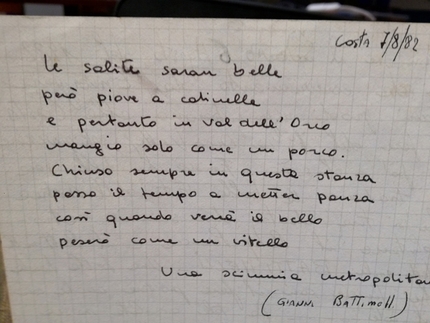 Costa 7/8/82
le salite saran belle
però piove a catinelle
e pertanto in val dell'Orco
mangio solo come un porco.
Chiuso sempre in questa stanza
passo il tempo a metter panza
così quando verrà il bello
peserò come un vitello
Una scimmia metropolitan
(GIANNI BATTIMELLI)